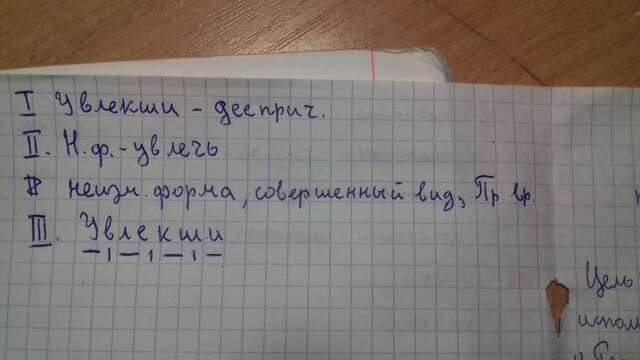 I Увлекши - дееприч.
II. Н.ф.-увлечь
неизм. форма, совершенный вид, Пр вр.
III. Увлекши
Цель